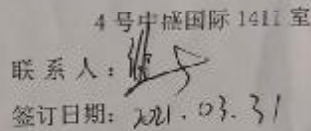 4号中盛国际1411室
联系人：
签订日期：2021.03.31